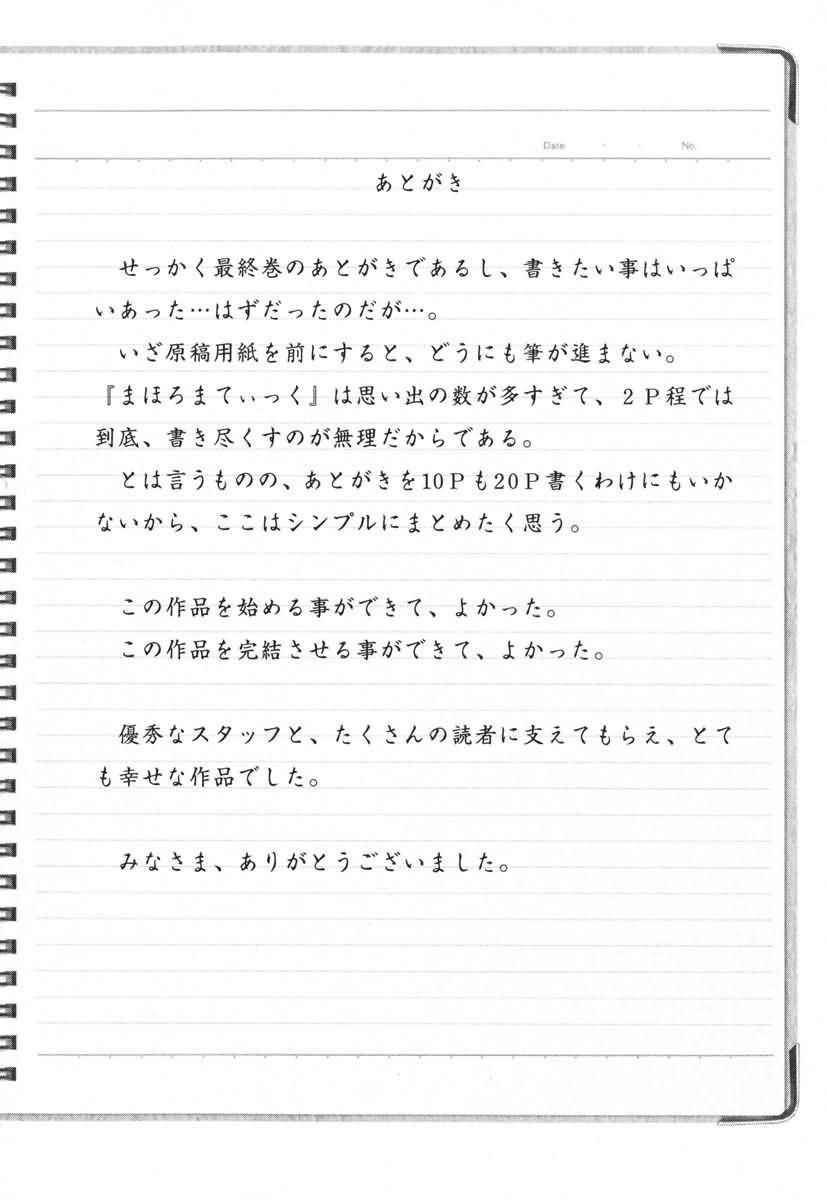 Date
No.
あとがき
せっかく最終巻のあとがきであるし、書きたい事はいっぱ
いあった…はずだったのだが…。
いざ原稿用紙を前にすると、どうにも筆が進まない。
『まほろまてぃっく』は思い出の数が多すぎて、２Ｐ程では
到底、書き尽くすのが無理だからである。
とは言うものの、あとがきを10Ｐも20Ｐ書くわけにもいか
ないから、ここはシンプルにまとめたく思う。
この作品を始める事ができて、よかった。
この作品を完結させる事ができて、よかった。
優秀なスタッフと、たくさんの読者に支えてもらえ、とて
も幸せな作品でした。
みなさま、ありがとうございました。